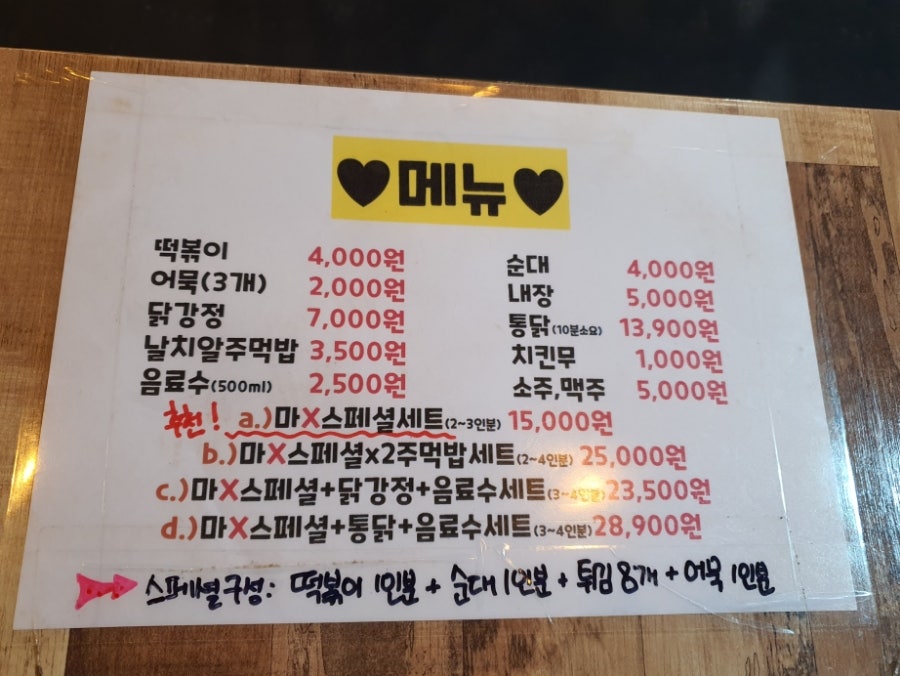 ♥메뉴♥
떡볶이 4,000원
어묵(3개) 2,000원
닭강정 7,000원
날치알주먹밥 3,500원
음료수(500ml) 2,500원
순대 4,000원
내장 5,000원
통닭(10분소요) 13,900원
치킨무 1,000원
소주,맥주 5,000원
추천! a.)마X스페셜세트(2~3인분) 15,000원
b.)마X스페셜x2주먹밥세트(2~4인분) 25,000원
c.)마X스페셜+닭강정+음료수세트(3~4인분)23,500원
d.)마X스페셜+통닭+음료수세트(3~4인분)28,900원
스페셜구성: 떡볶이 1인분 + 순대 1인분 + 튀김 8개 + 어묵 1인분